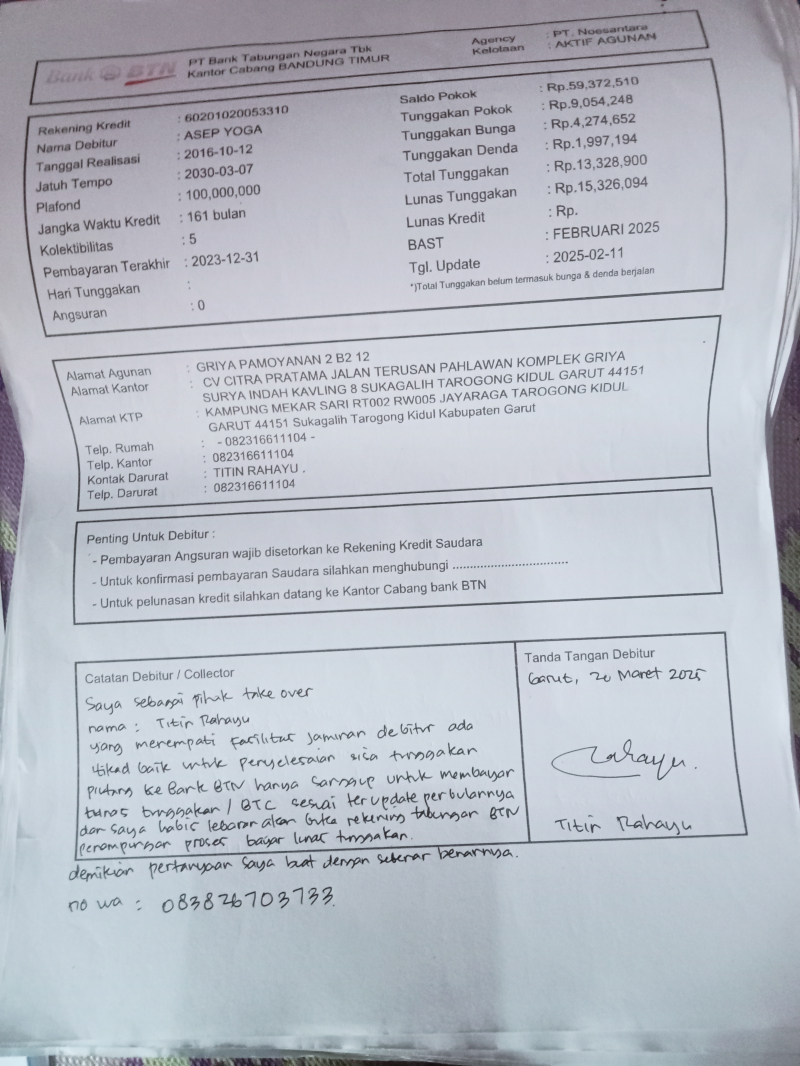 Bank BTN
PT Bank Tabungan Negara Tbk
Kantor Cabang BANDUNG TIMUR
Agency : PT. Noesantara
Kelolaan : AKTIF AGUNAN
Rekening Kredit : 60201020053310
Nama Debitur : ASEP YOGA
Tanggal Realisasi : 2016-10-12
Jatuh Tempo : 2030-03-07
Plafond : 100,000,000
Jangka Waktu Kredit : 161 bulan
Kolektibilitas : 5
Pembayaran Terakhir : 2023-12-31
Hari Tunggakan :
Angsuran : 0
Saldo Pokok : Rp.59,372,510
Tunggakan Pokok : Rp.9,054,248
Tunggakan Bunga : Rp.4,274,652
Tunggakan Denda : Rp.1,997,194
Total Tunggakan : Rp.13,328,900
Lunas Tunggakan : Rp.15,326,094
Lunas Kredit : Rp.
BAST : FEBRUARI 2025
Tgl. Update : 2025-02-11
*)Total Tunggakan belum termasuk bunga & denda berjalan
Alamat Agunan : GRIYA PAMOYANAN 2 B2 12
Alamat Kantor : CV CITRA PRATAMA JALAN TERUSAN PAHLAWAN KOMPLEK GRIYA
SURYA INDAH KAVLING 8 SUKAGALIH TAROGONG KIDUL GARUT 44151
Alamat KTP : KAMPUNG MEKAR SARI RT002 RW005 JAYARAGA TAROGONG KIDUL
GARUT 44151 Sukagalih Tarogong Kidul Kabupaten Garut
Telp. Rumah : - 082316611104 -
Telp. Kantor : 082316611104
Kontak Darurat : TITIN RAHAYU .
Telp. Darurat : 082316611104
Penting Untuk Debitur :
- Pembayaran Angsuran wajib disetorkan ke Rekening Kredit Saudara
- Untuk konfirmasi pembayaran Saudara silahkan menghubungi .................................
- Untuk pelunasan kredit silahkan datang ke Kantor Cabang bank BTN
Catatan Debitur / Collector
Saya sebagai pihak take over
nama : Titin Rahayu
yang menempati fasilitas jaminan debitur ada
itikad baik untuk penyelesaian sisa tunggakan
piutang ke Bank BTN hanya sanggup untuk membayar
lunas tunggakan / BTC sesuai ter update perbulannya
dan saya habis lebaran akan buka rekening tabungan BTN
penampungan proses bayar lunas tunggakan.
demikian pertanyaan saya buat dengan sebenar benarnya.
no wa : 083826703733
Tanda Tangan Debitur
Garut, 20 Maret 2025
Rahayu.
Titin Rahayu